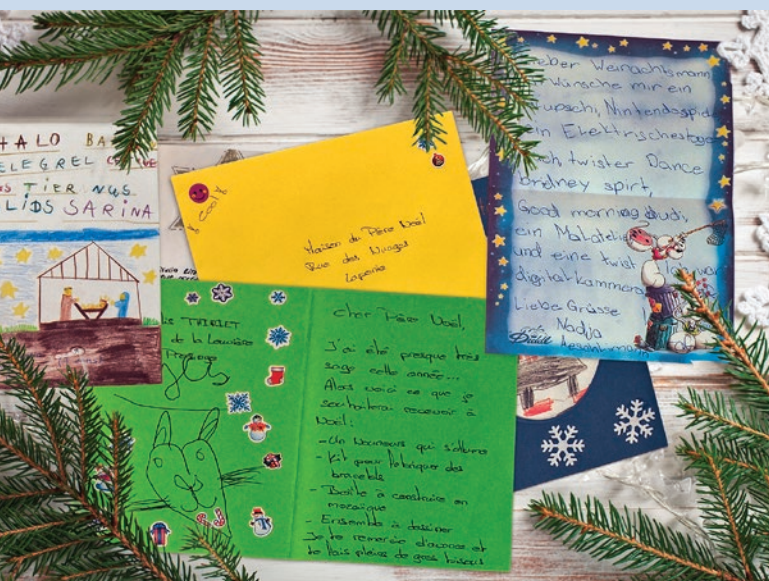 HALO BA
ELEGREL
TIER NUS
LIDS SARINA
Cool
Maison du Père Noël
Rue des Nuages
Laponie
THIRIET
de la Louvière
Cher Père Noël,
J'ai été presque très
sage cette année...
Alors voici ce que je
souhaiterai recevoir à
Noël:
- Un Nounours qui s'allume
- Kit pour fabriquer des
bracelets
- Boîte à construire en
mosaïque
- Ensemble à dessiner
Je te remercie d'avance et
te fais pleins de gros bisous
ieber Weinachtsmann
wünsche mir ein
upschi, Nintendospie
in Elektrischestog
ch twister Dance
Bridney spirt,
Good morning
ein
und eine twist
digitalkammera
Liebe Grüsse
Nadja
Aeschlimann
Diddl